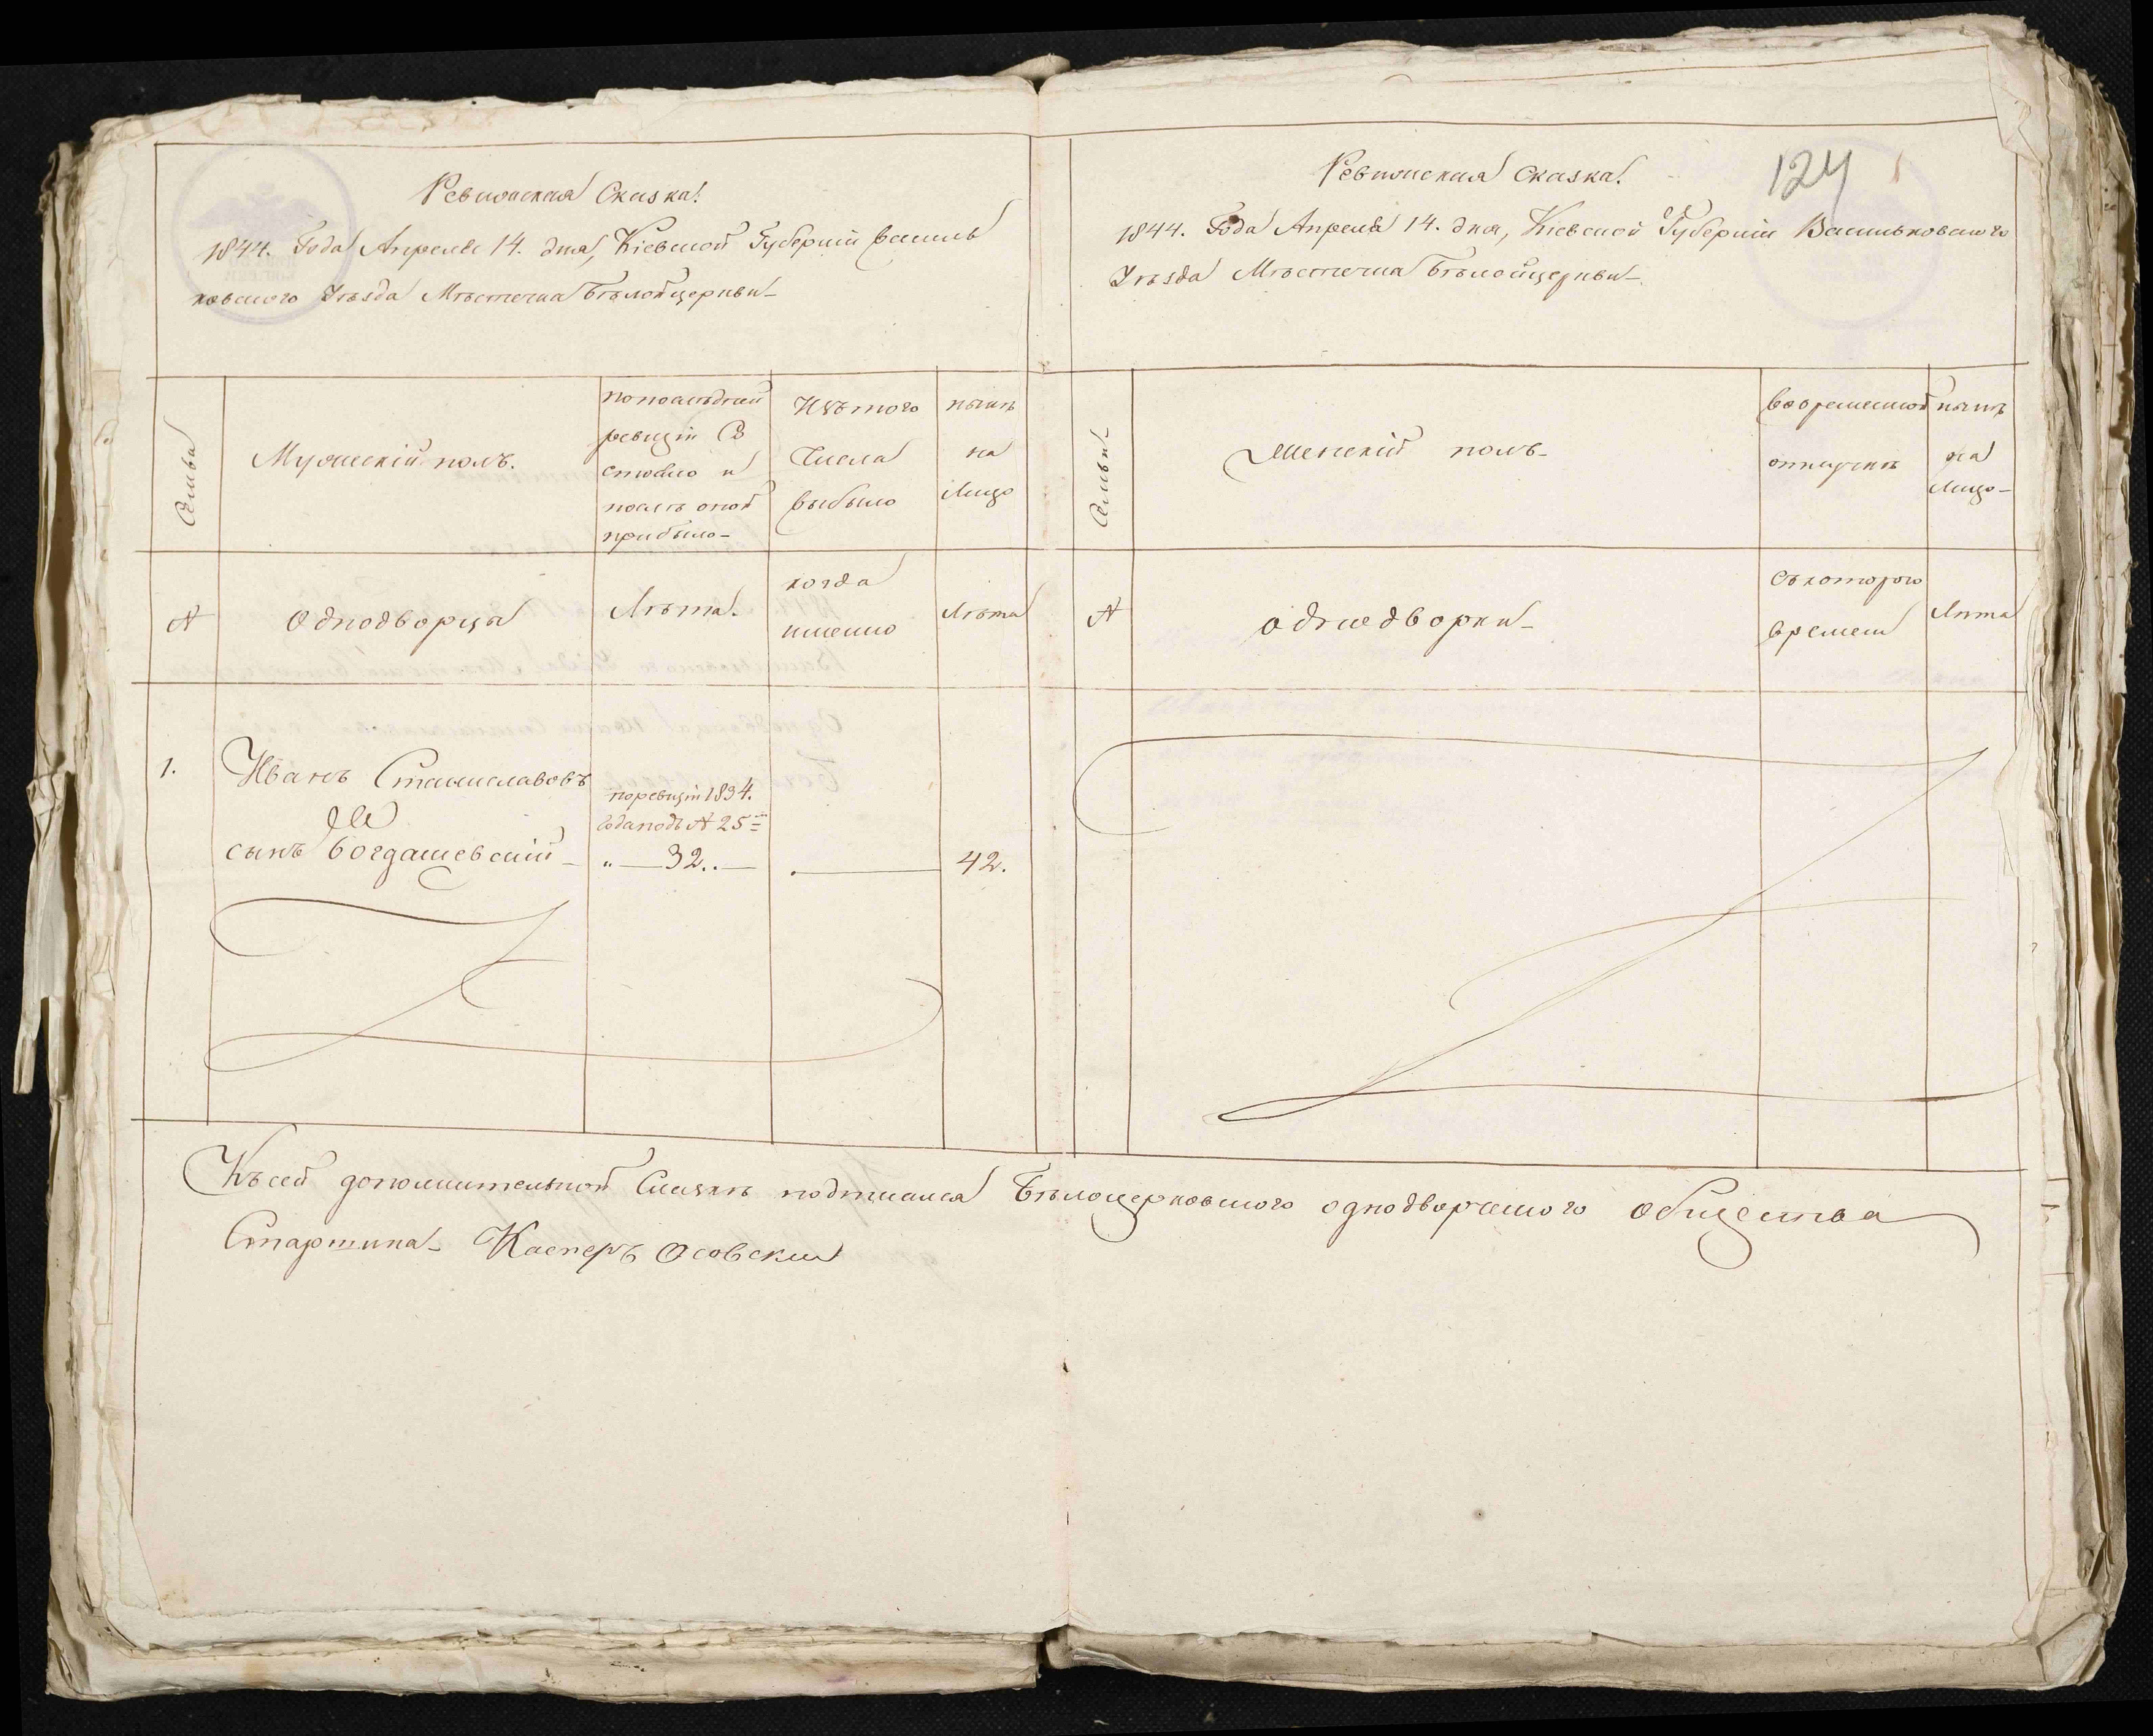 Ревизская Сказка!
1844. Года Апреля 14. дня, Кіевской Губерніи Василь
ковского Уѣзда Мѣстечка Бѣлойцеркви
Семьи
Мужескій полъ.
по послѣдней
ревизіи Со
стояло и
послѣ оной
прибыло
Изъ того
Числа
выбыло
нынѣ
на
Лицо
№
Однодворцы
Лѣта.
когда
именно
Лѣта
1.
Иванъ Станиславовъ
сынъ Богдашевскій
по ревизіи 1834.
года подъ № 25
32.
42.
Ревизская Сказка.
124
1844. Года Апреля 14. дня, Кіевской Губерніи Васильковского
Уѣзда Мѣстечка Бѣлойцеркви
Семьи
Женскій полъ
во временной
отлучкѣ
нынѣ
на
Лицо
№
однодворки
Съ которого
времени
Лѣта
Къ сей дополнительной Сказкѣ подписался Бѣлоцерковского однодворческого общества
Старшина Касперъ Осовский